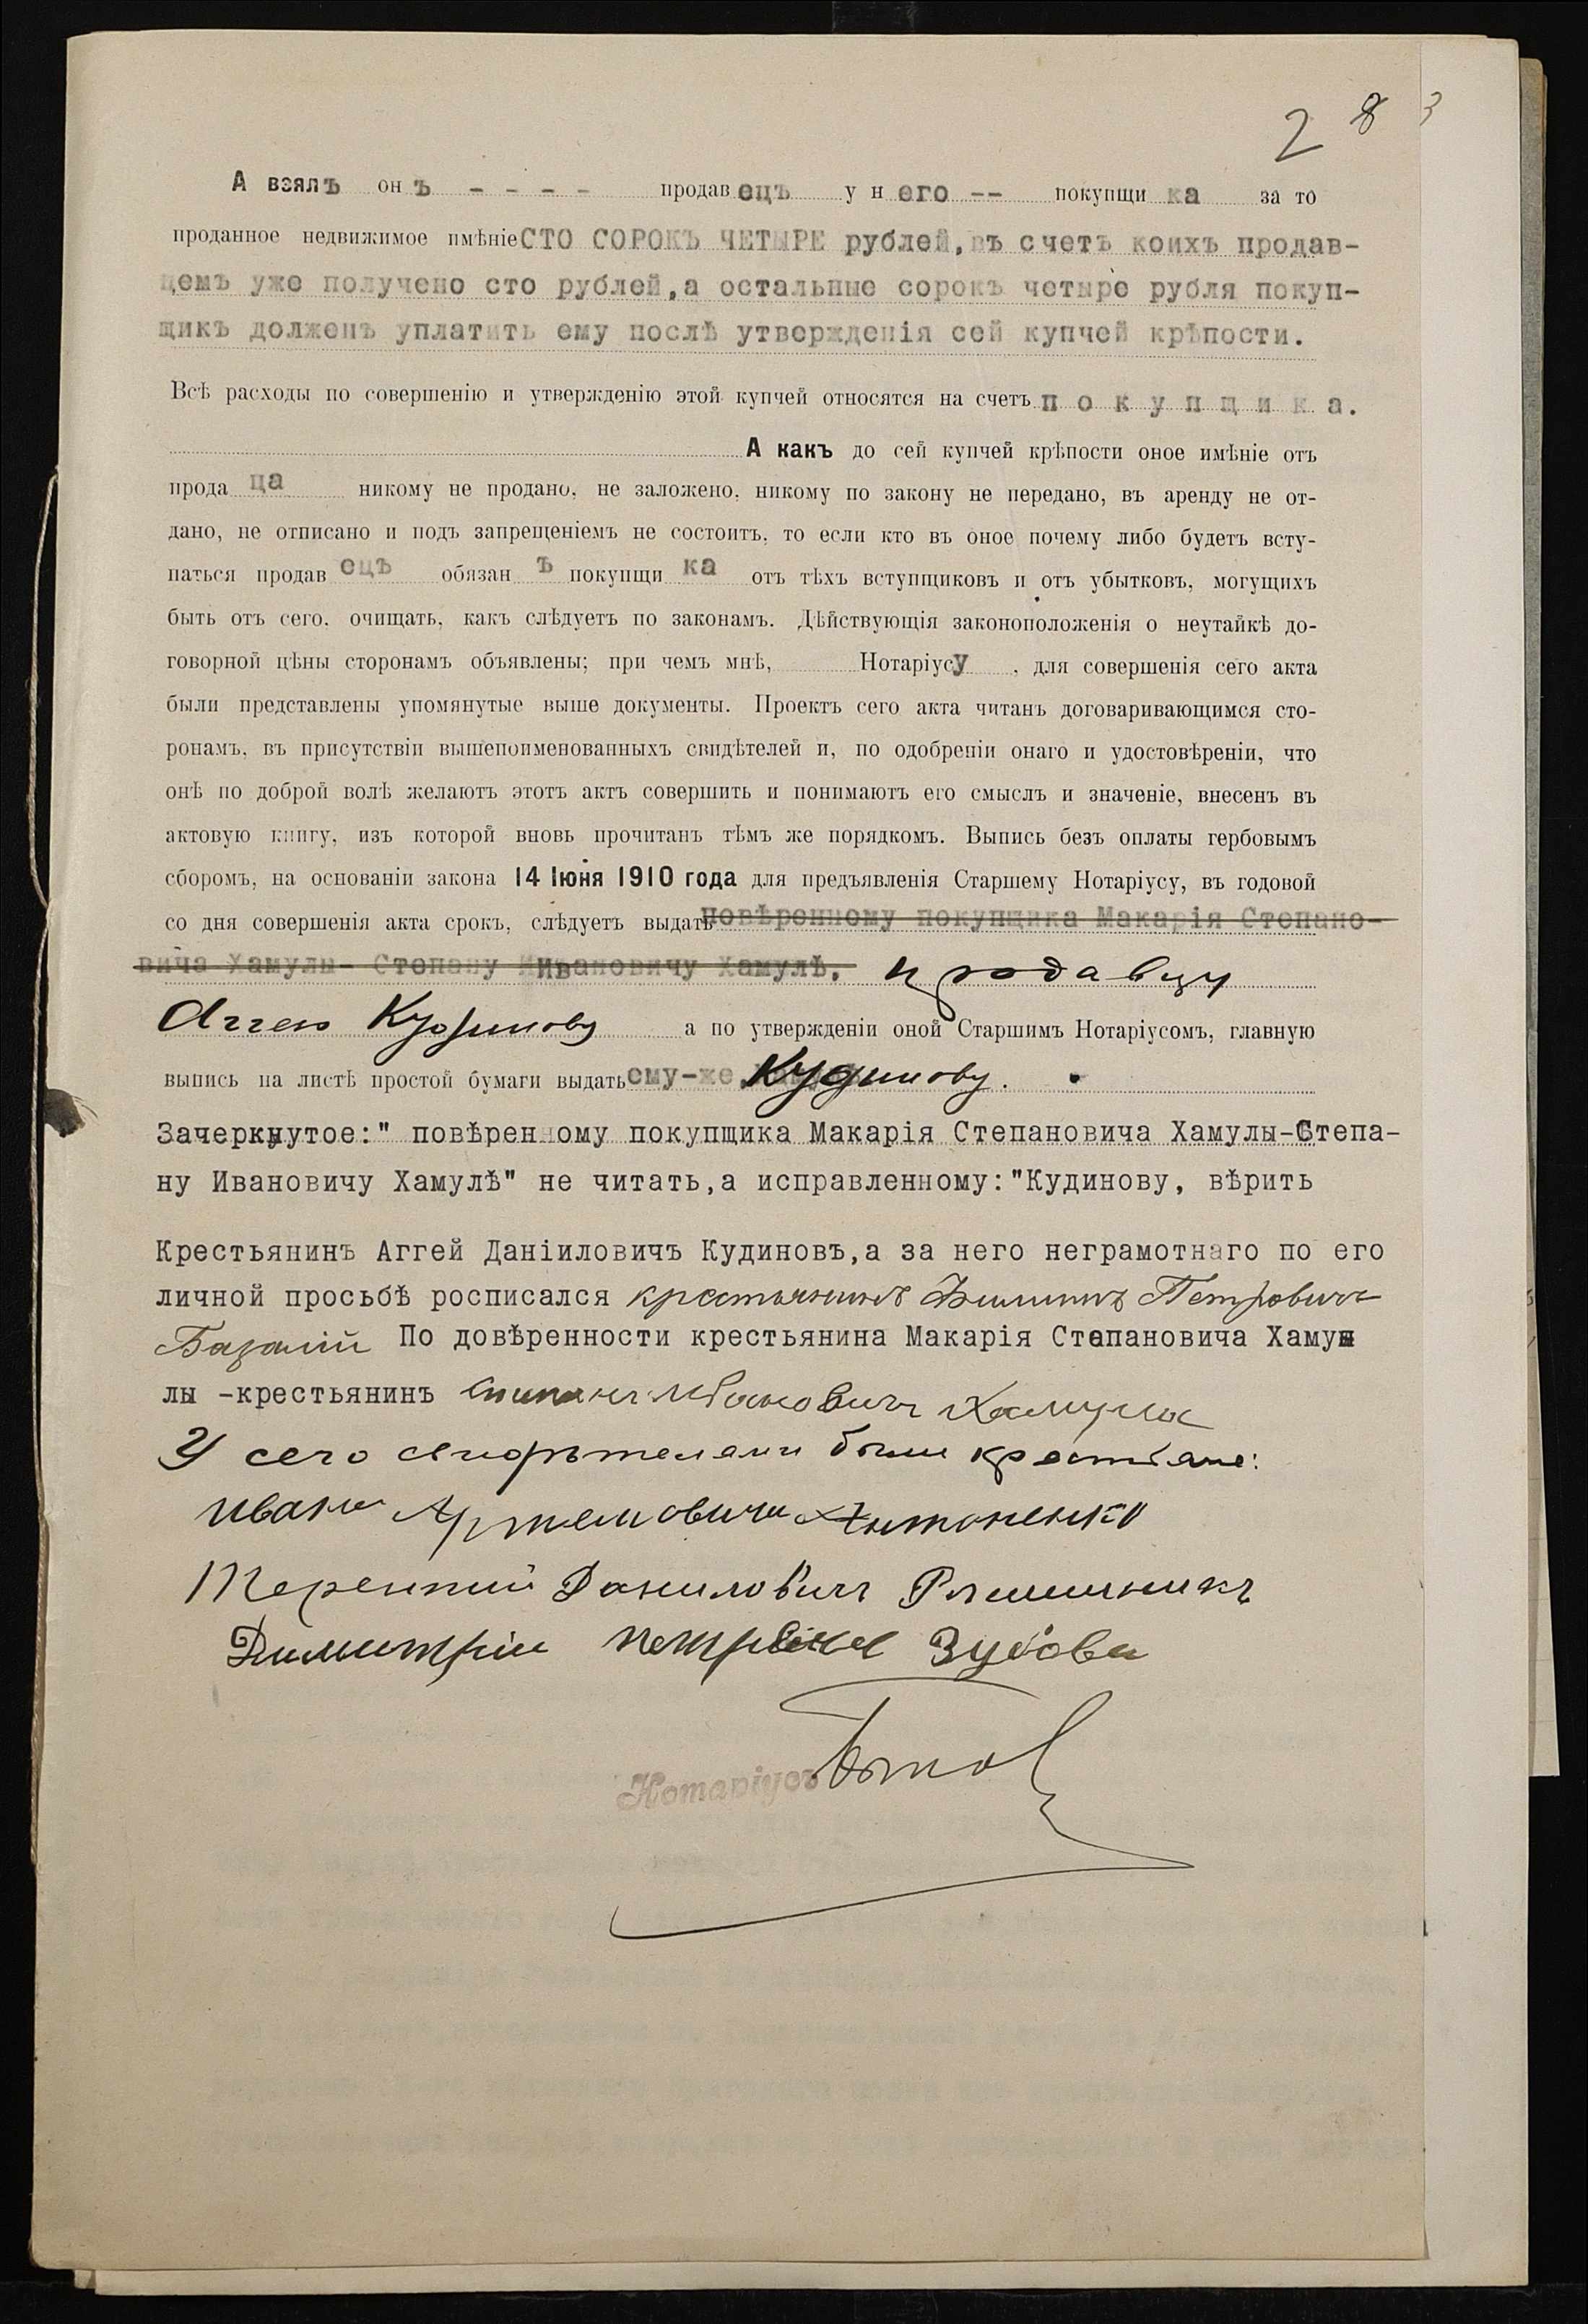 2 8 3
А взялъ онъ - - - - продавецъ у него -- покупщика за то
проданное недвижимое имѣніе СТО СОРОКЪ ЧЕТЫРЕ рублей, въ счетъ коихъ продав-
цемъ уже получено сто рублей, а остальные сорокъ четыре рубля покуп-
щикъ долженъ уплатить ему послѣ утвержденія сей купчей крѣпости.
Всѣ расходы по совершенію и утвержденію этой купчей относятся на счетъ покупщика.
А какъ до сей купчей крѣпости оное имѣніе отъ
продаца никому не продано, не заложено, никому по закону не передано, въ аренду не от-
дано, не отписано и подъ запрещеніемъ не состоитъ, то если кто въ оное почему либо будетъ всту-
паться продавецъ обязанъ покупщика отъ тѣхъ вступщиковъ и отъ убытковъ, могущихъ
быть отъ сего, очищать, какъ слѣдуетъ по законамъ. Дѣйствующія законоположенія о неутайкѣ до-
говорной цѣны сторонамъ объявлены; при чемъ мнѣ, Нотаріусу, для совершенія сего акта
были представлены упомянутые выше документы. Проектъ сего акта читанъ договаривающимся сто-
ронамъ, въ присутствіи вышепоименованныхъ свидѣтелей и, по одобреніи онаго и удостовѣреніи, что
онѣ по доброй волѣ желаютъ этотъ актъ совершить и понимаютъ его смыслъ и значеніе, внесенъ въ
актовую книгу, изъ которой вновь прочитанъ тѣмъ же порядкомъ. Выпись безъ оплаты гербовымъ
сборомъ, на основаніи закона 14 Іюня 1910 года для предъявленія Старшему Нотаріусу, въ годовой
со дня совершенія акта срокъ, слѣдуетъ выдать повѣренному покупщика Макарія Степано-
вича Хамулы- Степану Ивановичу Хамулѣ. продавцу
Аггею Кудинову а по утвержденіи оной Старшимъ Нотаріусомъ, главную
выпись на листѣ простой бумаги выдать ему-же, Кудинову.
Зачеркнутое:" повѣренному покупщика Макарія Степановича Хамулы-Степа-
ну Ивановичу Хамулѣ" не читать,а исправленному:"Кудинову, вѣрить
Крестьянинъ Аггей Даніиловичъ Кудиновъ,а за него неграмотнаго по его
личной просьбѣ росписался крестьянинъ Филиппъ Петровичъ
Базалій По довѣренности крестьянина Макарія Степановича Хаму
лы -крестьянинъ Степанъ Ивановичъ Хамула
У сего свидѣтелями были крестьяне:
Иванъ Артемовичъ Антоненко
Терентий Данилович
Димитрій Петровичъ Зубовъ
Нотаріусъ